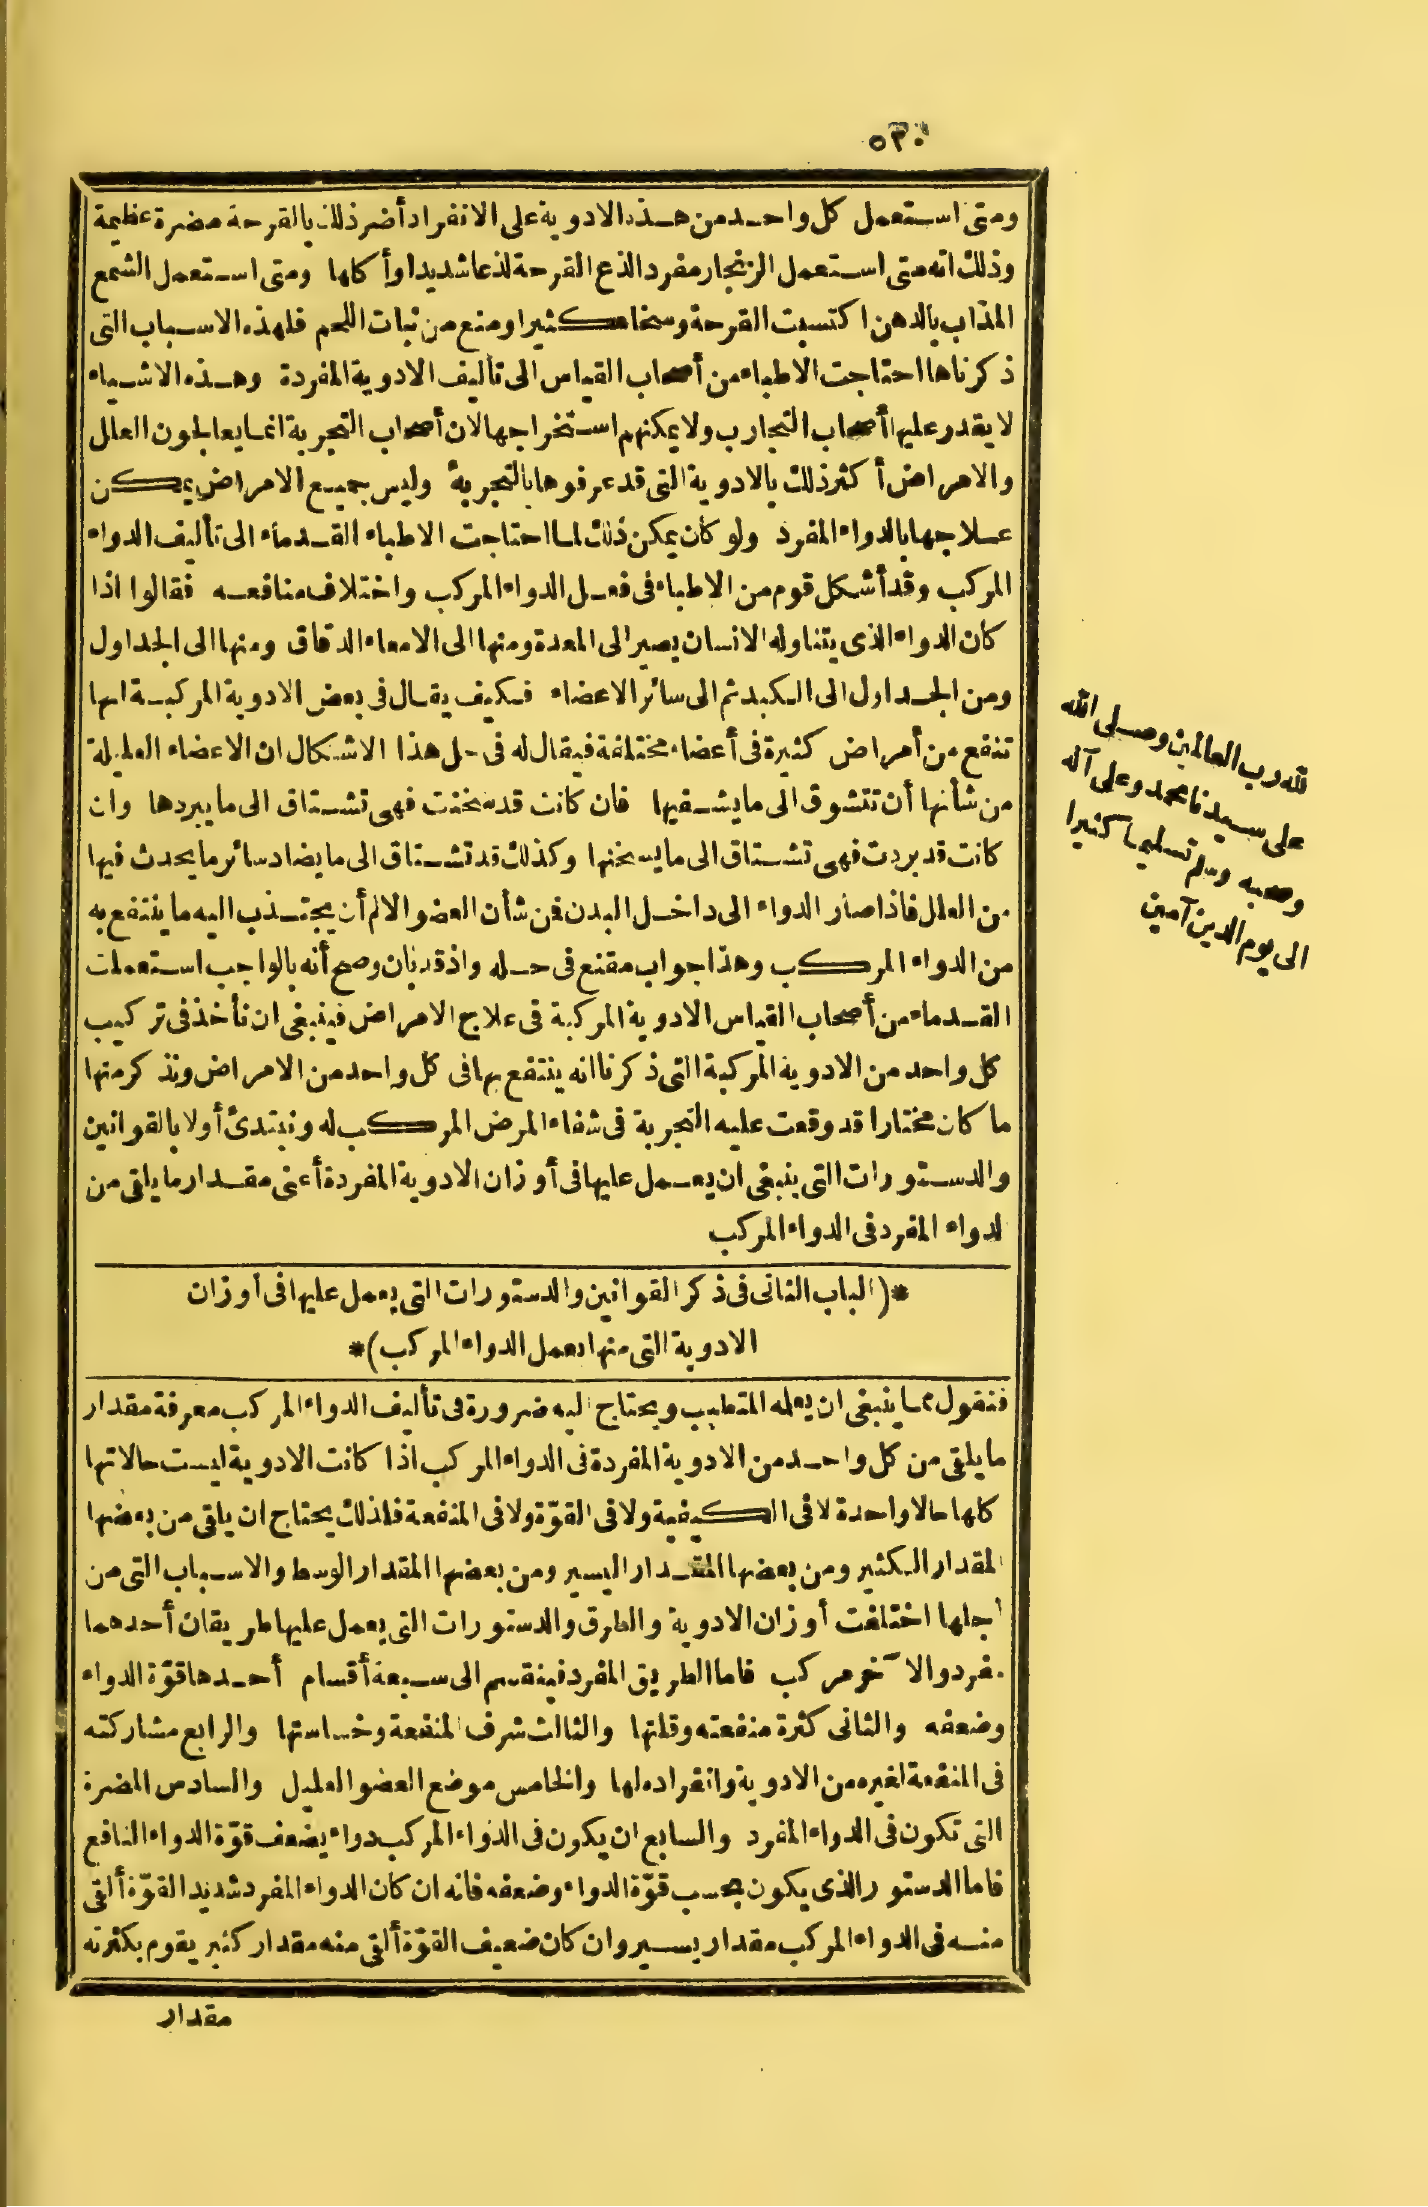 ٥٣٠
ومتى استعمل كل واحد من هذه الادوية على الانفراد أضر ذلك بالقرحة مضرة عظيمة
وذلك انه متى استعمل الزنجار مفردا لذع القرحة لذعا شديدا وأكلها ومتى استعمل الشمع
المذاب بالدهن اكتسبت القرحة وسخا كثيرا ومنع من نبات اللحم فلهذه الاسباب التى
ذكرناها احتاجت الاطباء من أصحاب القياس الى تأليف الادوية المفردة وهذه الاشياء
لا يقدر عليها أصحاب التجارب ولا يمكنهم استخراجها لان أصحاب التجربة انما يعالجون العلل
والامراض أكثر ذلك بالادوية التى قد عرفوها بالتجربة وليس جميع الامراض يمكن
علاجها بالدواء المفرد ولو كان يمكن ذلك لما احتاجت الاطباء القدماء الى تأليف الدواء
المركب وقد أشكل قوم من الاطباء فى فعل الدواء المركب واختلاف منافعه فقالوا اذا
كان الدواء الذى يتناوله الانسان يصير الى المعدة ومنها الى الامعاء الدقاق ومنها الى الجداول
ومن الجداول الى الكبد ثم الى سائر الاعضاء فكيف يقال فى بعض الادوية المركبة انها
تنفع من أمراض كثيرة فى أعضاء مختلفة فيقال له فى حل هذا الاشكال ان الاعضاء العليلة
من شأنها أن تتشوق الى ما يشفيها فان كانت قد سخنت فهى تشتاق الى ما يبردها وان
كانت قد بردت فهى تشتاق الى ما يسخنها وكذلك قد تشتاق الى ما يضاد سائر ما يحدث فيها
من العلل فاذا صار الدواء الى داخل البدن فمن شأن العضو الالم أن يجتذب اليه ما ينتفع به
من الدواء المركب وهذا جواب مقنع فى حله واذ قد بان وصح أنه بالواجب استعملت
القدماء من أصحاب القياس الادوية المركبة فى علاج الامراض فينبغى ان نأخذ فى تركيب
كل واحد من الادوية المركبة التى ذكرنا انه ينتفع بها فى كل واحد من الامراض ونذكر منها
ما كان مختارا قد وقعت عليه التجربة فى شفاء المرض المركب له ونبتدئ أولا بالقوانين
والدستورات التى ينبغى ان يعمل عليها فى أوزان الادوية المفردة أعنى مقدار ما يلقى من
لدواء المفرد فى الدواء المركب
*(الباب الثانى فى ذكر القوانين والدستورات التى يعمل عليها فى أوزان
الادوية التى منها يعمل الدواء المركب)*
فنقول مما ينبغى ان يعلمه المتطبب ويحتاج اليه ضرورة فى تأليف الدواء المركب معرفة مقدار
ما يلقى من كل واحد من الادوية المفردة فى الدواء المركب اذا كانت الادوية ليست حالاتها
كلها حالا واحدة لا فى الكيفية ولا فى القوّة ولا فى المنفعة فلذلك يحتاج ان يلقى من بعضها
المقدار الكثير ومن بعضها المقدار اليسير ومن بعضها المقدار الوسط والاسباب التى من
أجلها اختلفت أوزان الادوية والطرق والدستورات التى يعمل عليها طريقان أحدهما
مفرد والآخر مركب فاما الطريق المفرد فينقسم الى سبعة أقسام أحدها قوّة الدواء
وضعفه والثانى كثرة منفعته وقلتها والثالث شرف المنفعة وخساستها والرابع مشاركته
فى المنفعة لغيره من الادوية وانفراده لها والخامس موضع العضو العليل والسادس المضرة
التى تكون فى الدواء المفرد والسابع ان يكون فى الدواء المركب دواء يضعف قوّة الدواء النافع
فاما الدستور الذى يكون بحسب قوّة الدواء وضعفه فانه ان كان الدواء المفرد شديد القوّة ألقى
منه فى الدواء المركب مقدار يسير وان كان ضعيف القوّة ألقى منه مقدار كثير يقوم بكثرته
مقدار
لله رب العالمين وصلى الله
على سيدنا محمد وعلى آله
وصحبه وسلم تسليما كثيرا
الى يوم الدين آمين